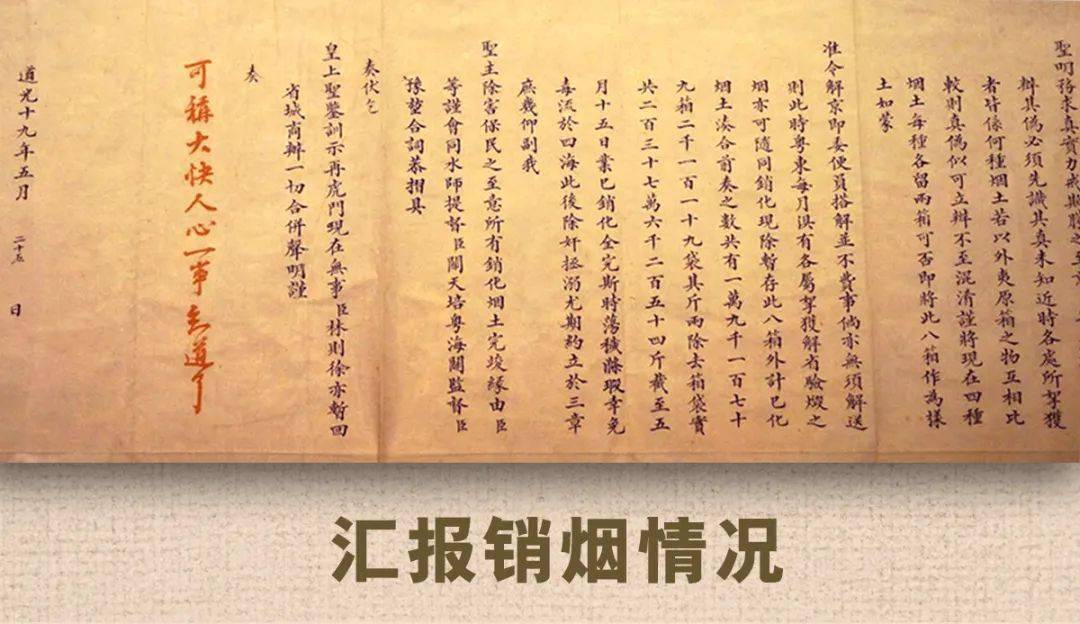 聖明務求真實力戒欺
辯其偽必須先識其真未知近時各處所拏獲
者皆係何種烟土若以外夷原箱之物互相比
較則真偽似可立辯不至混淆謹將現在四種
烟土每種各留兩箱可否即將此八箱作為樣
土如蒙
准令解京即委便員搭解並不費事倘亦無須解送
則此時粵東每月俱有各屬拏獲解省驗燬之
烟亦可隨同銷化現除暫存此八箱外計已化
烟土湊合前奏之數共有一萬九千一百七十
九箱二千一百一十九袋其斤兩除去箱袋實
共二百三十七萬六千二百五十四斤截至五
月十五日業已銷化全完斯時蕩穢滌瑕幸免
毒流於四海此後除奸拯溺尤期約立於三章
庶幾仰副我
聖主除害保民之至意所有銷化烟土完竣緣由臣
等謹會同水師提督臣關天培粵海關監督臣
豫堃合詞恭摺具
奏伏乞
皇上聖鑒訓示再虎門現在無事臣林則徐亦暫回
省城商辦一切合併聲明謹
奏
可稱大快人心一事知道了
道光十九年五月二十五日
汇报销烟情况